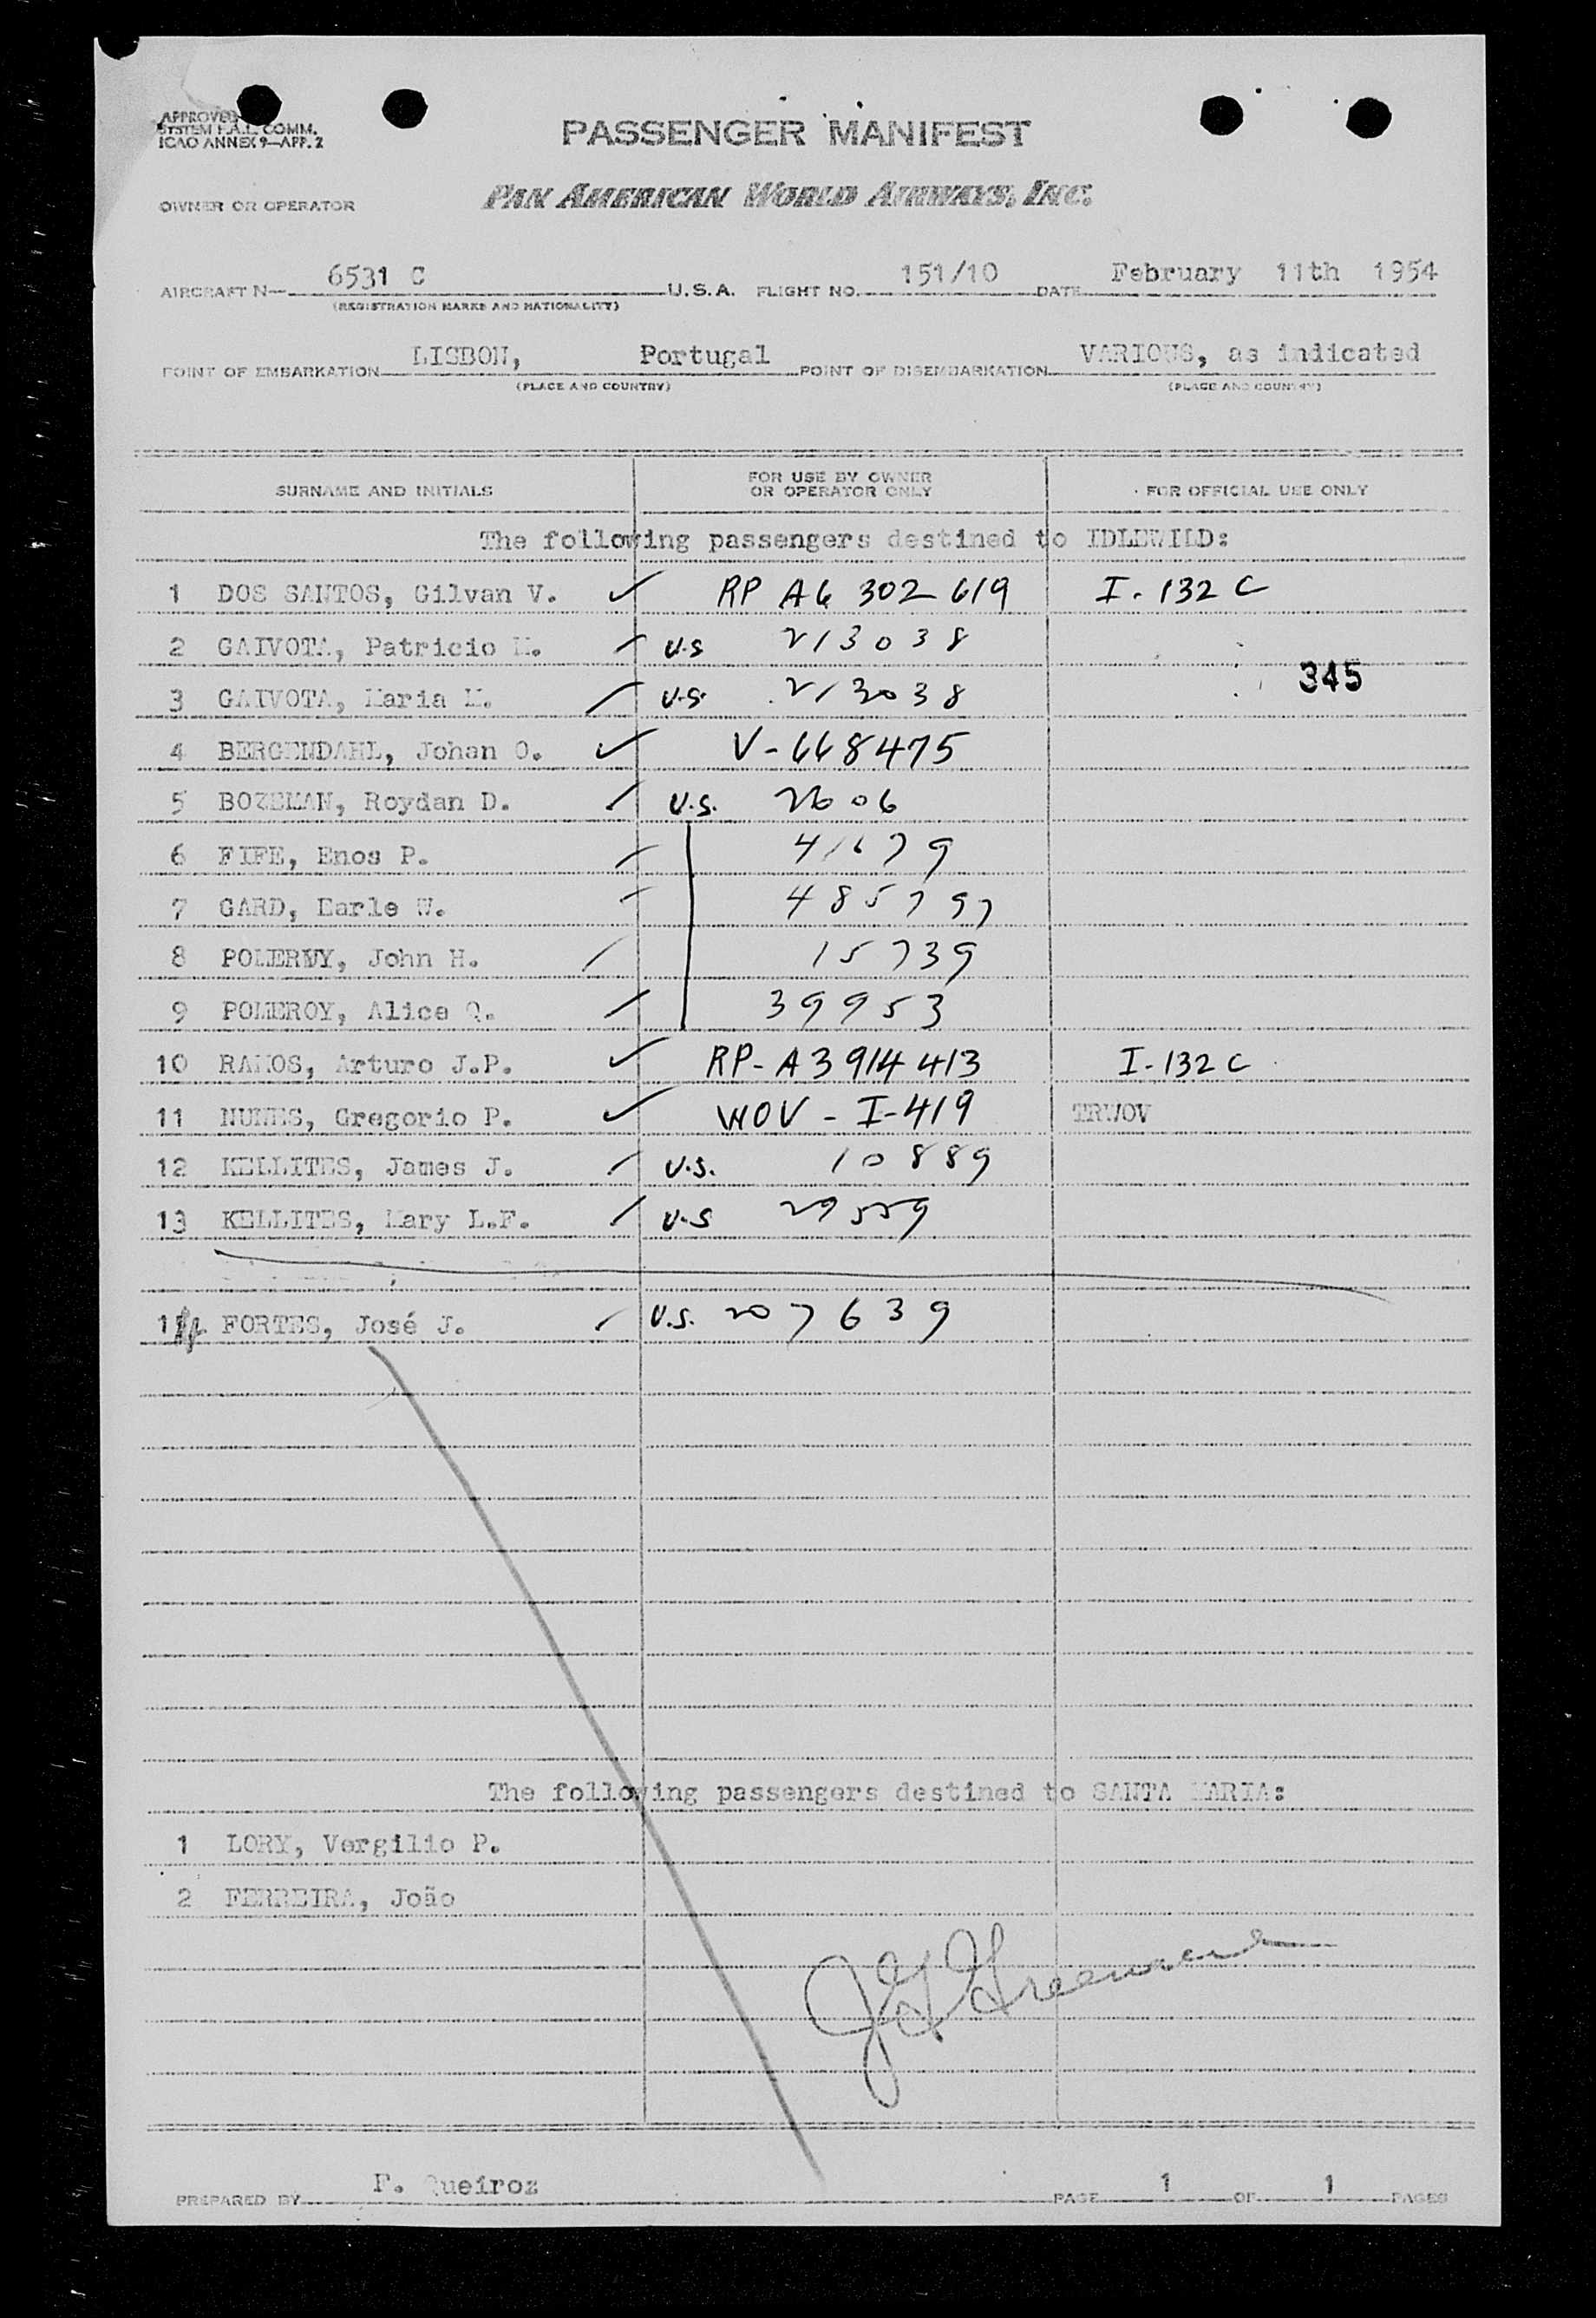 APPROVED
SYSTEM F.A.L. COMM.
ICAO ANNEX 9—APP. 2
PASSENGER MANIFEST
OWNER OR OPERATOR PAN AMERICAN WORLD AIRWAYS, INC.
AIRCRAFT N— 6531 C U.S.A. FLIGHT NO. 151/10 DATE February 11th 1954
(REGISTRATION MARKS AND NATIONALITY)
POINT OF EMBARKATION LISBON, Portugal POINT OF DISEMBARKATION VARIOUS, as indicated
(PLACE AND COUNTRY) (PLACE AND COUNTRY)
SURNAME AND INITIALS FOR USE BY OWNER OR OPERATOR ONLY FOR OFFICIAL USE ONLY
The following passengers destined to IDLEWILD:
1 DOS SANTOS, Gilvan V. ✓ RP A6 302 619 I-132 C
2 GAIVOTA, Patricio M. U.S 213038
345
3 GAIVOTA, Maria M. U.S. 213038
4 BERGENDAHL, Johan O. ✓ V-668475
5 BOZEMAN, Roydan D. U.S. 2606
6 FIFE, Enos P. 41679
7 GARD, Earle W. 485797
8 POMEROY, John H. 15739
9 POMEROY, Alice Q. 39953
10 RAMOS, Arturo J.P. ✓ RP-A3914413 I-132 C
11 NUNES, Gregorio P. ✓ WOV-I-419 TRWOV
12 KELLITES, James J. U.S. 10889
13 KELLITES, Mary L.F. U.S 29559
FORTES, José J. U.S. 207639
The following passengers destined to SANTA MARIA:
1 LORY, Vergilio P.
2 FERREIRA, João
PREPARED BY F. Queiroz PAGE 1 OF 1 PAGES